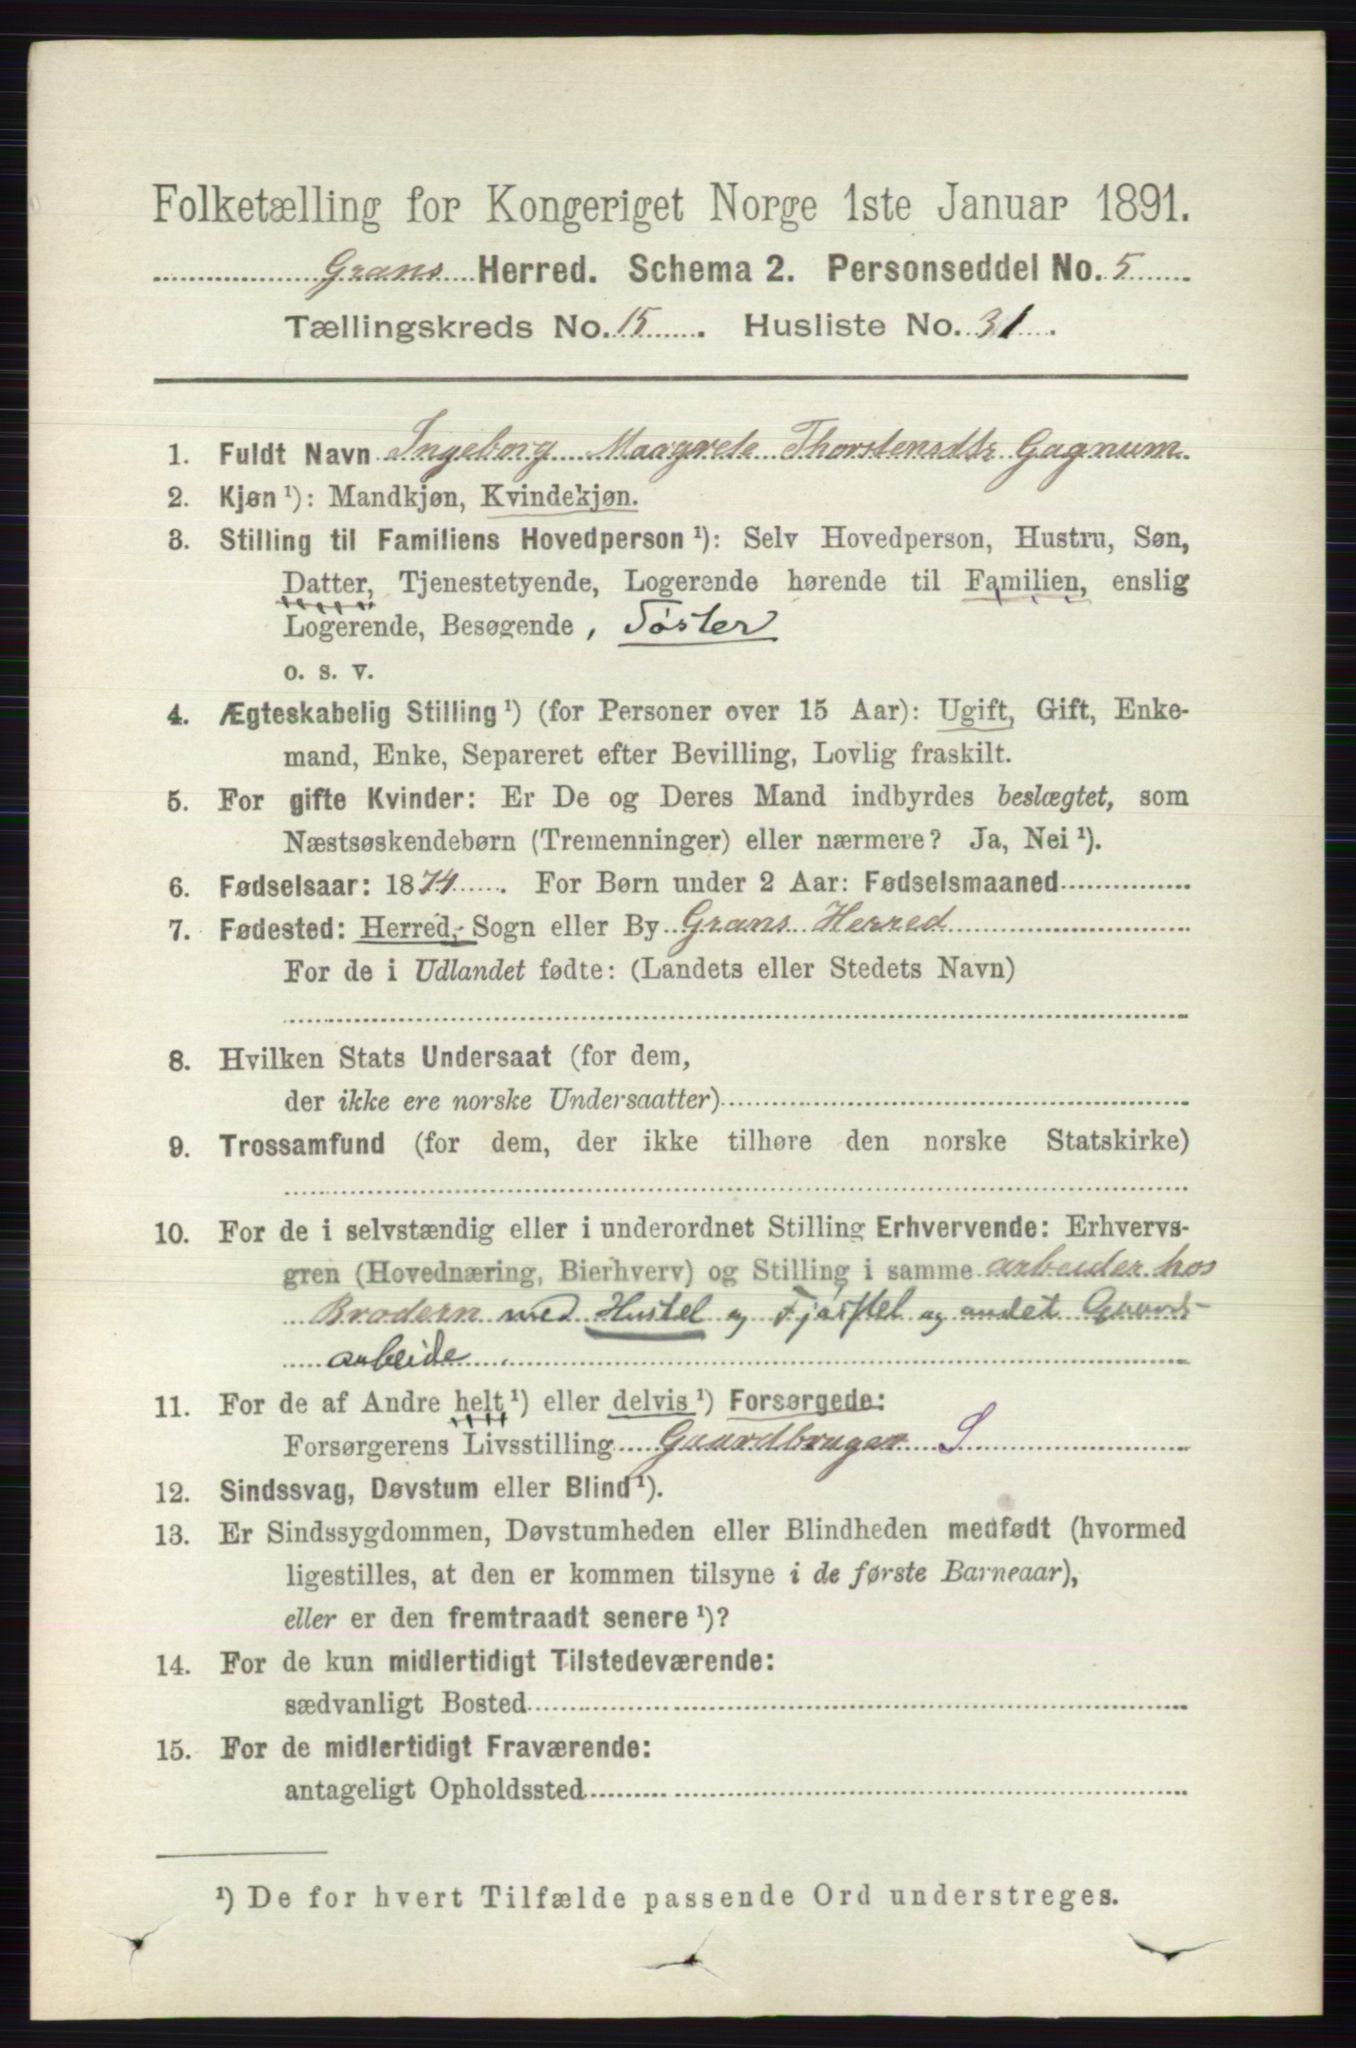 Folketælling for Kongeriget Norge 1ste Januar 1891.
Grans Herred. Schema 2. Personseddel No. 5
Tællingskreds No. 15. Husliste No. 31.
1. Fuldt Navn Ingeborg Margrete Thorstensdtr Gagnum
2. Kjøn ¹): Mandkjøn, Kvindekjøn.
3. Stilling til Familiens Hovedperson ¹): Selv Hovedperson, Hustru, Søn,
Datter, Tjenestetyende, Logerende hørende til Familien, enslig
Logerende, Besøgende, Søster
o. s. v.
4. Ægteskabelig Stilling ¹) (for Personer over 15 Aar): Ugift, Gift, Enke-
mand, Enke, Separeret efter Bevilling, Lovlig fraskilt.
5. For gifte Kvinder: Er De og Deres Mand indbyrdes beslægtet, som
Næstsøskendebørn (Tremenninger) eller nærmere? Ja, Nei ¹).
6. Fødselsaar: 1874. For Børn under 2 Aar: Fødselsmaaned
7. Fødested: Herred, Sogn eller By Grans Herred
For de i Udlandet fødte: (Landets eller Stedets Navn)
8. Hvilken Stats Undersaat (for dem,
der ikke ere norske Undersaatter)
9. Trossamfund (for dem, der ikke tilhøre den norske Statskirke)
10. For de i selvstændig eller i underordnet Stilling Erhvervende: Erhvervs-
gren (Hovednæring, Bierhverv) og Stilling i samme arbeider hos
Brodern med Hustel og Fjøsstel og andet Gaards-
arbeide
11. For de af Andre helt ¹) eller delvis ¹) Forsørgede:
Forsørgerens Livsstilling Gaardbruger S
12. Sindssvag, Døvstum eller Blind ¹).
13. Er Sindssygdommen, Døvstumheden eller Blindheden medfødt (hvormed
ligestilles, at den er kommen tilsyne i de første Barneaar),
eller er den fremtraadt senere ¹)?
14. For de kun midlertidigt Tilstedeværende:
sædvanligt Bosted
15. For de midlertidigt Fraværende:
antageligt Opholdssted
¹) De for hvert Tilfælde passende Ord understreges.